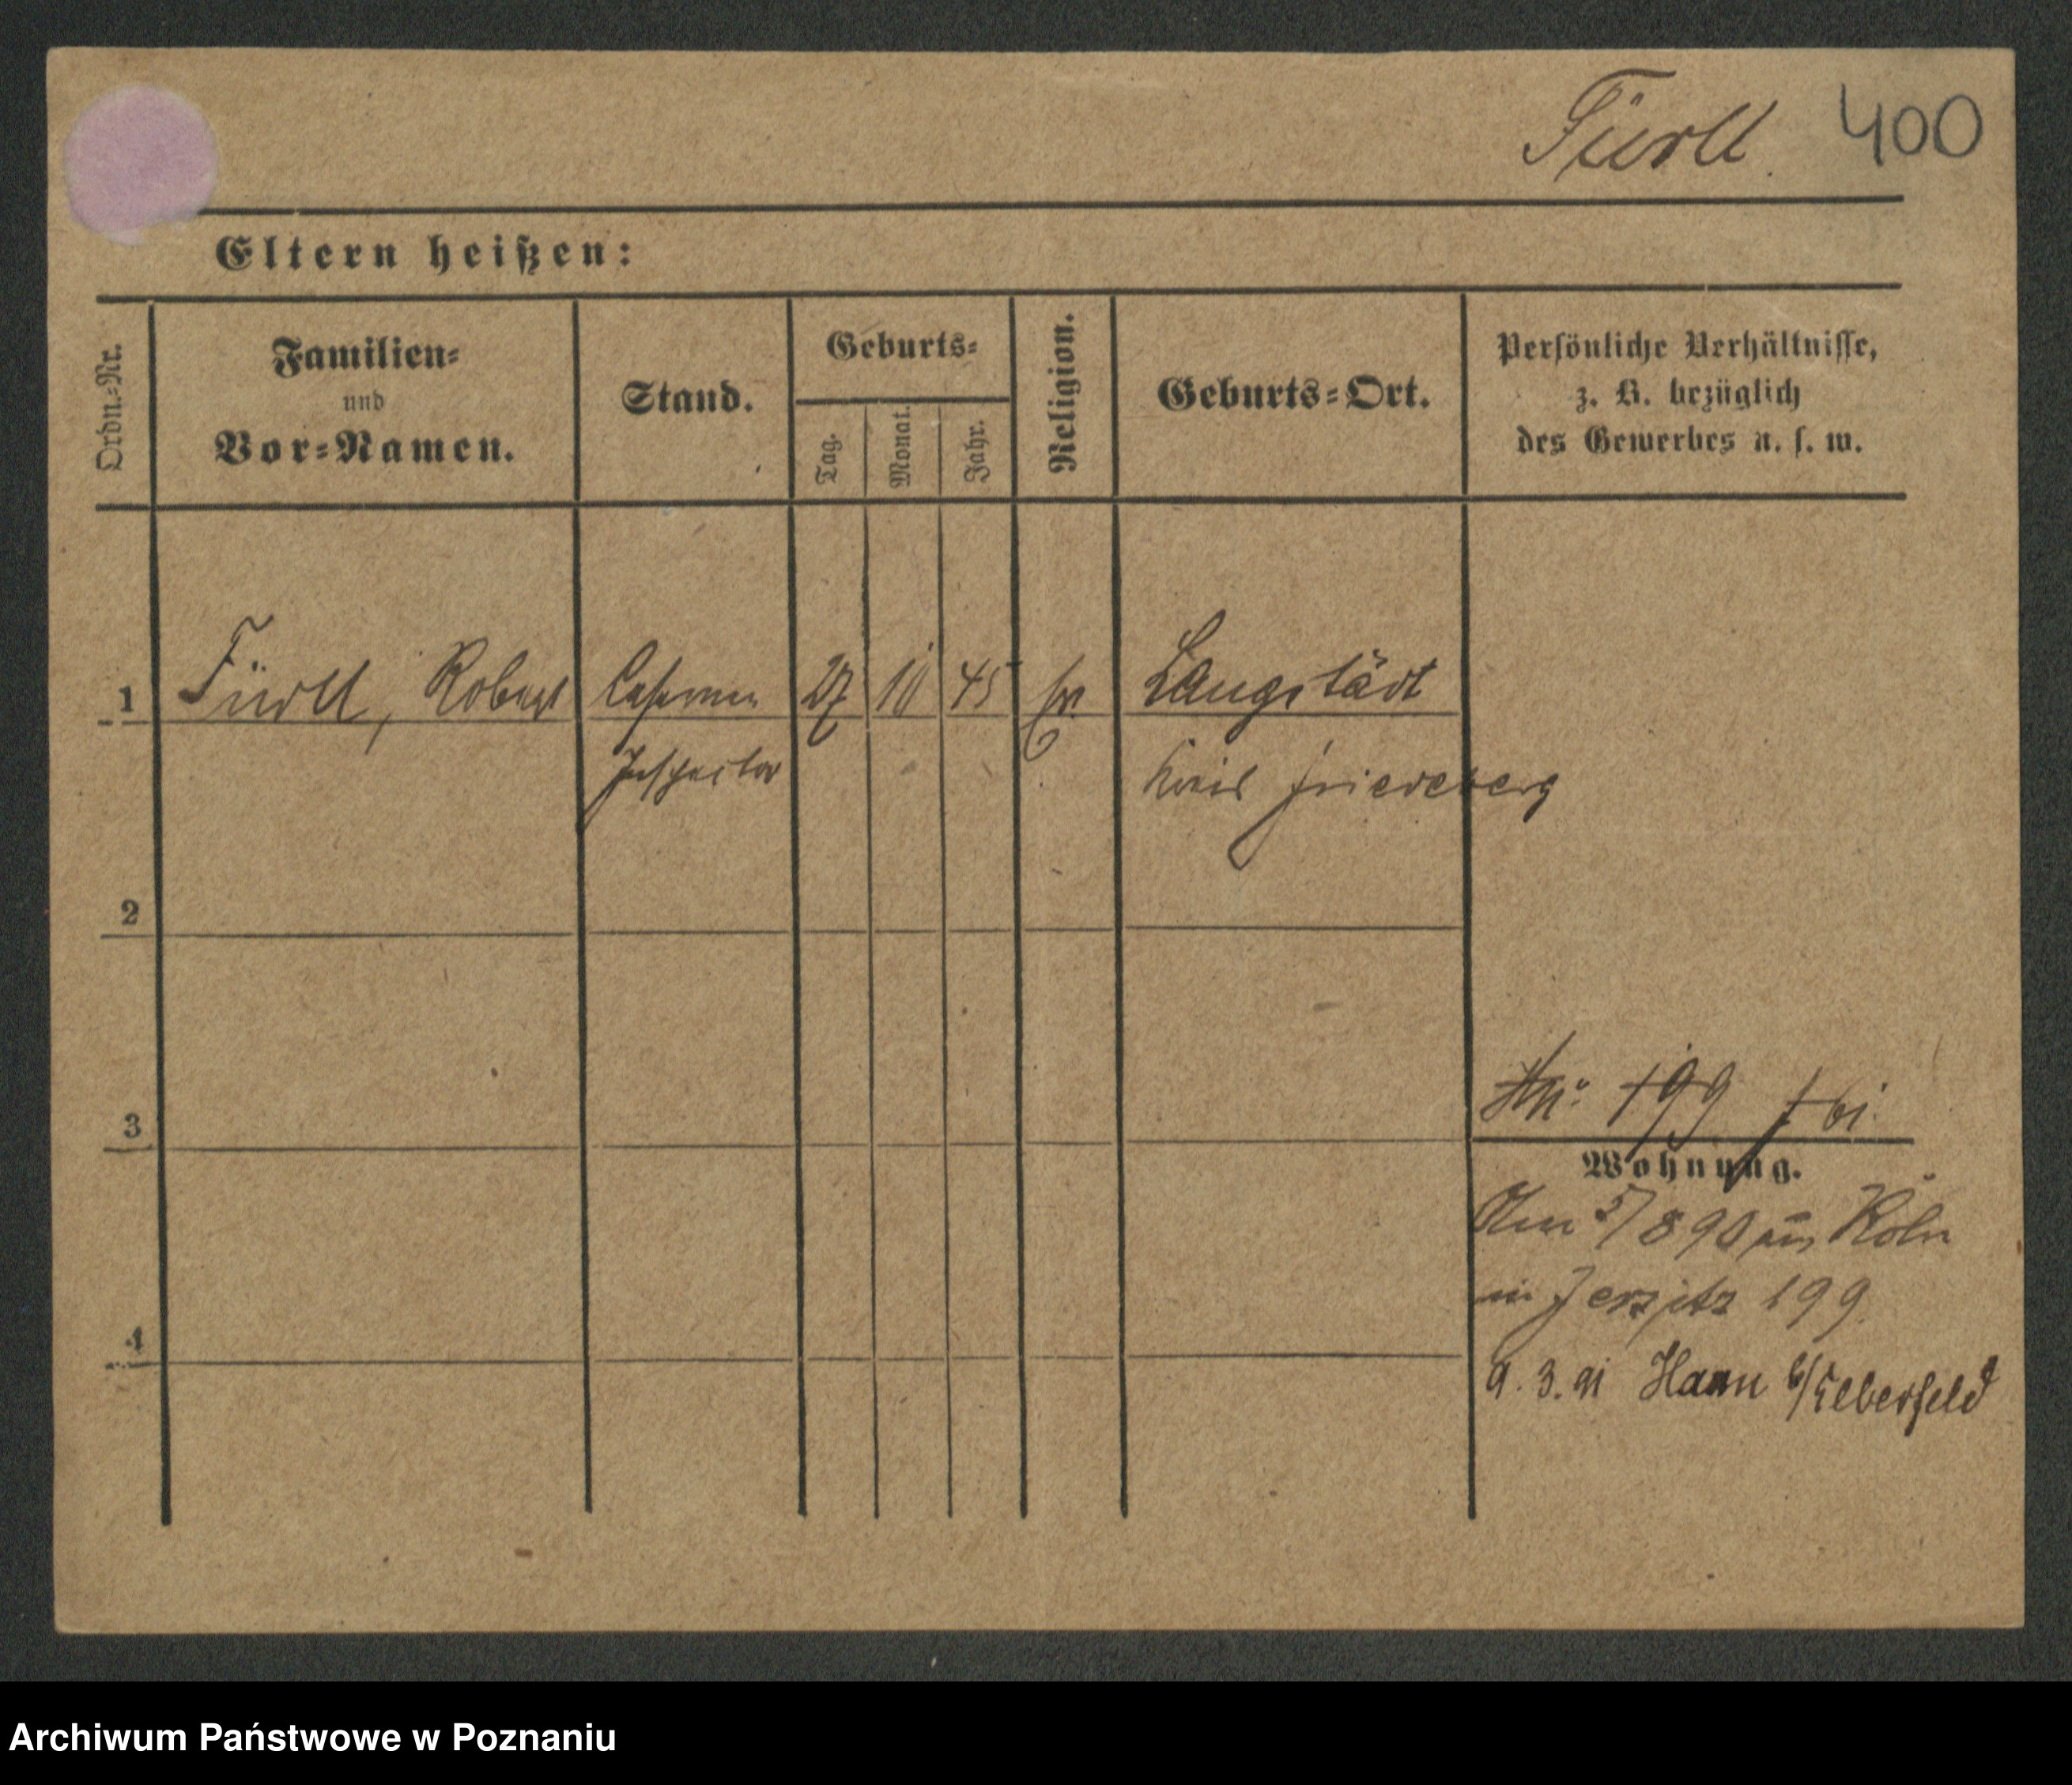 Fürll. 400
Eltern heißen:
Ordn.-Nr.
Familien-
und
Vor-Namen.
Stand.
Geburts-
Tag.
Monat.
Jahr.
Religion.
Geburts-Ort.
Persönliche Verhältnisse,
z. B. bezüglich
des Gewerbes u. s. w.
1 Fürll, Robert Casernen 27 10 45 ev. Langstädt
Inspector Kreis Friedeberg
2
3
199
Wohnung.
4
Am 5/8 90 aus Köln
in Jersitz 199.
9. 3. 91 Haan b/Elberfeld
Archiwum Państwowe w Poznaniu